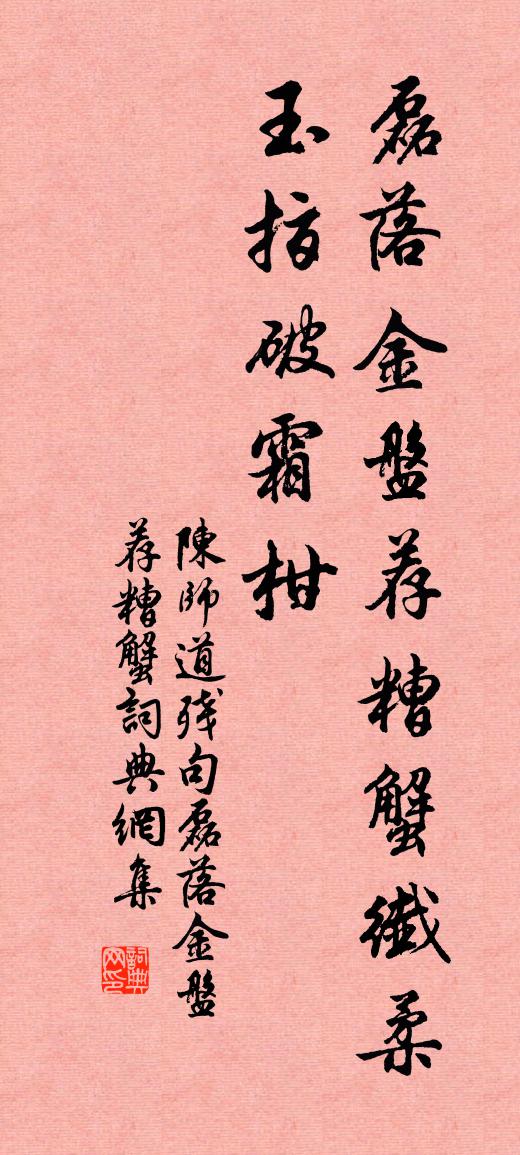 磊落金盤荐糟蟹纖柔
玉指破霜柑
陳師道残句磊落金盤
荐糟蟹詞典網集
詞典网印